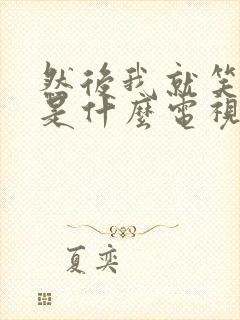 然後我就笑
是什麼電視
夏奕